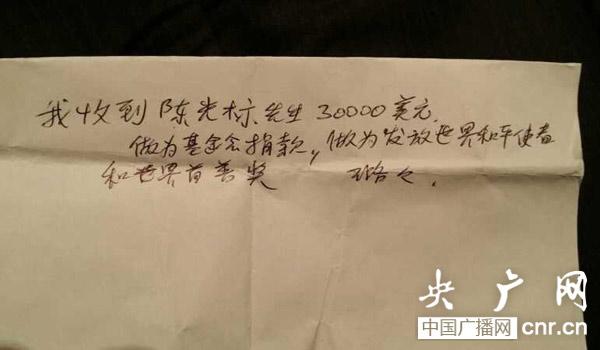 我收到陈光标先生30000美元.
做为基金会捐款,做为发放世界和平使者
和世界首善奖
央广网
中国广播网 cnr.cn